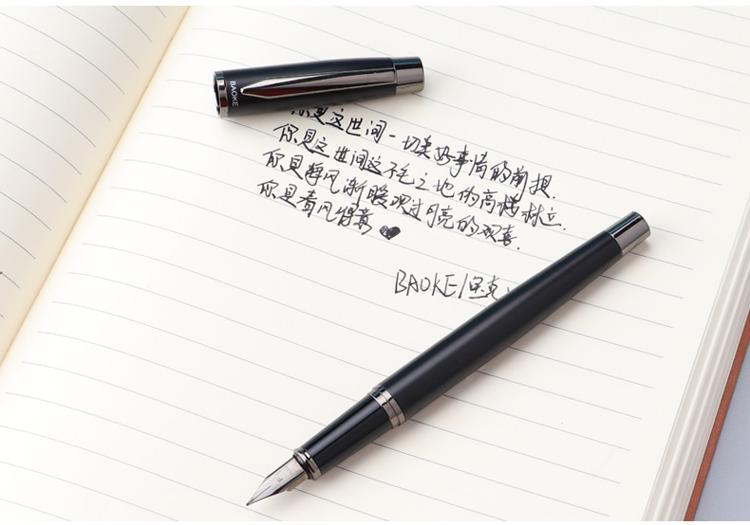 BAOKE
你是这世间一切美好事情的前提.
你是这世间这不毛之地的高楼林立.
你是静风渐暖吹过月亮的欢喜.
你是春风得意 ♥
BAOKE/宝克